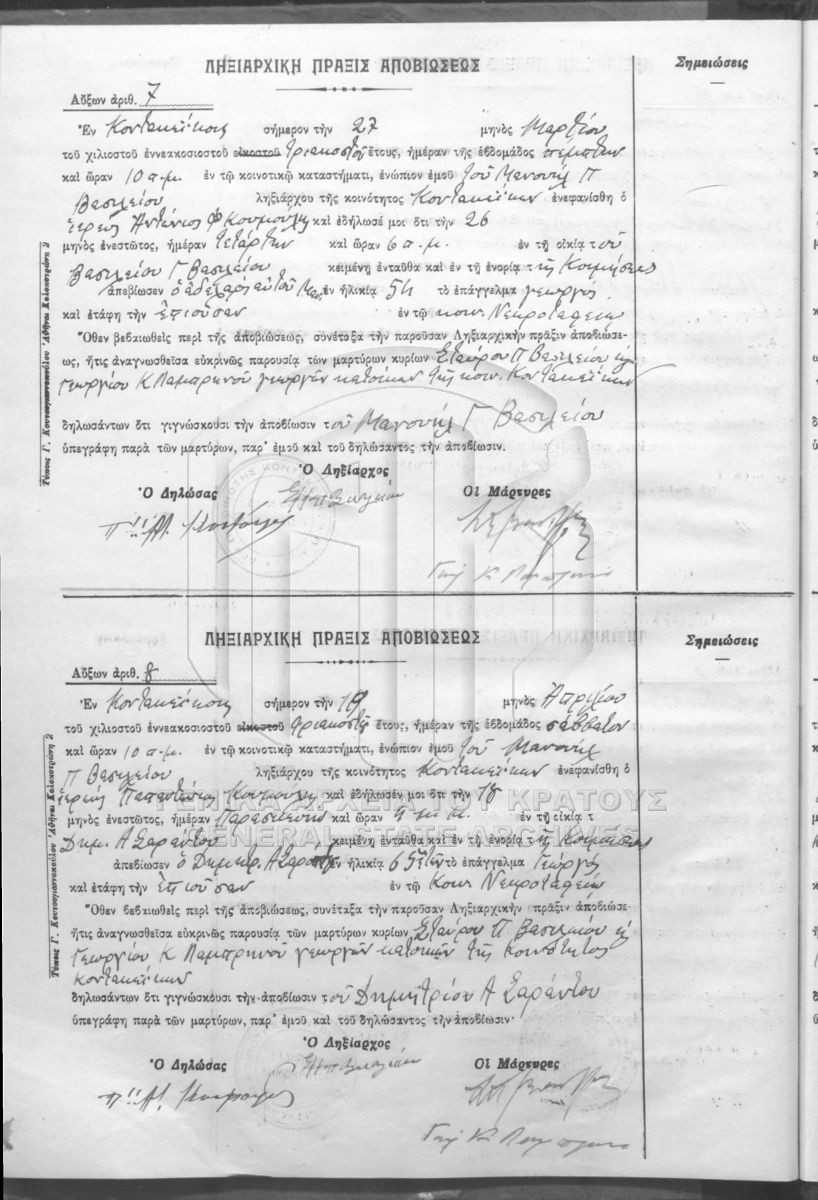 ΛΗΞΙΑΡΧΙΚΗ ΠΡΑΞΙΣ ΑΠΟΒΙΩΣΕΩΣ
Σημειώσεις
Αὔξων ἀριθ. 7
Ἐν Κοντακέϊκοις σήμερον τὴν 27 μηνὸς Μαρτίου
τοῦ χιλιοστοῦ ἐννεακοσιοστοῦ εἰκοστοῦ τριακοστοῦ ἔτους, ἡμέραν τῆς ἑβδομάδος πέμπτην
καὶ ὥραν 10 π.μ. ἐν τῷ κοινοτικῷ καταστήματι, ἐνώπιον ἐμοῦ τοῦ Μανουὴλ Π
Βασιλείου ληξιάρχου τῆς κοινότητος Κοντακέϊκων ἐνεφανίσθη ὁ
ἱερεὺς Ἀντώνιος Φ καὶ ἐδήλωσέ μοι ὅτι τὴν 26
μηνὸς ἐνεστῶτος, ἡμέραν τετάρτην καὶ ὥραν 6 π.μ. ἐν τῇ οἰκίᾳ τοῦ
Βασιλείου Γ Βασιλείου κειμένῃ ἐνταῦθα καὶ ἐν τῇ ἐνορίᾳ τῆς Κοιμήσεως
ἀπεβίωσεν ὁ ἀδελφὸς αὐτοῦ ἐν ἡλικίᾳ 54 τὸ ἐπάγγελμα γεωργὸς
καὶ ἐτάφη τὴν ἐπιοῦσαν ἐν τῷ κοιν. Νεκροταφείῳ
Ὅθεν βεβαιωθεὶς περὶ τῆς ἀποβιώσεως, συνέταξα τὴν παροῦσαν Ληξιαρχικὴν πρᾶξιν ἀποβιώσε-
ως, ἥτις ἀναγνωσθεῖσα εὐκρινῶς παρουσίᾳ τῶν μαρτύρων κυρίων Σταύρου Π Βασιλείου καὶ
Γεωργίου Κ Λαμπρινοῦ γεωργῶν κατοίκων τῆς κοιν. Κοντακέϊκων
δηλωσάντων ὅτι γιγνώσκουσι τὴν ἀποβίωσιν τοῦ Μανουὴλ Γ Βασιλείου
ὑπεγράφη παρὰ τῶν μαρτύρων, παρ' ἐμοῦ καὶ τοῦ δηλώσαντος τὴν ἀποβίωσιν.
Ὁ Ληξίαρχος
Ὁ Δηλώσας
Οἱ Μάρτυρες
Τύποις Γ. Κουτσογιαννοπούλου Ἀθῆναι Κολοκοτρώνη 2
ΛΗΞΙΑΡΧΙΚΗ ΠΡΑΞΙΣ ΑΠΟΒΙΩΣΕΩΣ
Σημειώσεις
Αὔξων ἀριθ. 8
Ἐν Κοντακέϊκοις σήμερον τὴν 19 μηνὸς Ἀπριλίου
τοῦ χιλιοστοῦ ἐννεακοσιοστοῦ εἰκοστοῦ τριακοστοῦ ἔτους, ἡμέραν τῆς ἑβδομάδος σάββατον
καὶ ὥραν 10 π.μ. ἐν τῷ κοινοτικῷ καταστήματι, ἐνώπιον ἐμοῦ τοῦ Μανουὴλ
Π Βασιλείου ληξιάρχου τῆς κοινότητος Κοντακέϊκων ἐνεφανίσθη ὁ
ἱερεὺς Παπαντώνης καὶ ἐδήλωσέν μοι ὅτι τὴν 18
μηνὸς ἐνεστῶτος, ἡμέραν Παρασκευὴν καὶ ὥραν ἐν τῇ οἰκίᾳ τ
Δημ. Α Σαράντου κειμένῃ ἐνταῦθα καὶ ἐν τῇ ἐνορίᾳ τῆς Κοιμήσεως
ἀπεβίωσεν ὁ Δημητρ. Α Σαράντου ἐν ἡλικίᾳ 65 ἐτῶν τὸ ἐπάγγελμα Γεωργὸς
καὶ ἐτάφη τὴν ἐπιοῦσαν ἐν τῷ Κοιν. Νεκροταφείῳ
Ὅθεν βεβαιωθεὶς περὶ τῆς ἀποβιώσεως, συνέταξα τὴν παροῦσαν Ληξιαρχικὴν πρᾶξιν ἀποβιώσε-
ἥτις ἀναγνωσθεῖσα εὐκρινῶς παρουσίᾳ τῶν μαρτύρων κυρίων Σταύρου Π Βασιλείου καὶ
Γεωργίου Κ Λαμπρινοῦ γεωργῶν κατοίκων τῆς Κοινότητος
Κοντακέϊκων
δηλωσάντων ὅτι γιγνώσκουσι τὴν ἀποβίωσιν τοῦ Δημητρίου Α Σαράντου
ὑπεγράφη παρὰ τῶν μαρτύρων, παρ' ἐμοῦ καὶ τοῦ δηλώσαντος τὴν ἀποβίωσιν.
Ὁ Ληξίαρχος
Ὁ Δηλώσας
Οἱ Μάρτυρες
Τύποις Γ. Κουτσογιαννοπούλου Ἀθῆναι Κολοκοτρώνη 2
ΓΕΝΙΚΑ ΑΡΧΕΙΑ ΤΟΥ ΚΡΑΤΟΥΣ
GENERAL STATE ARCHIVES